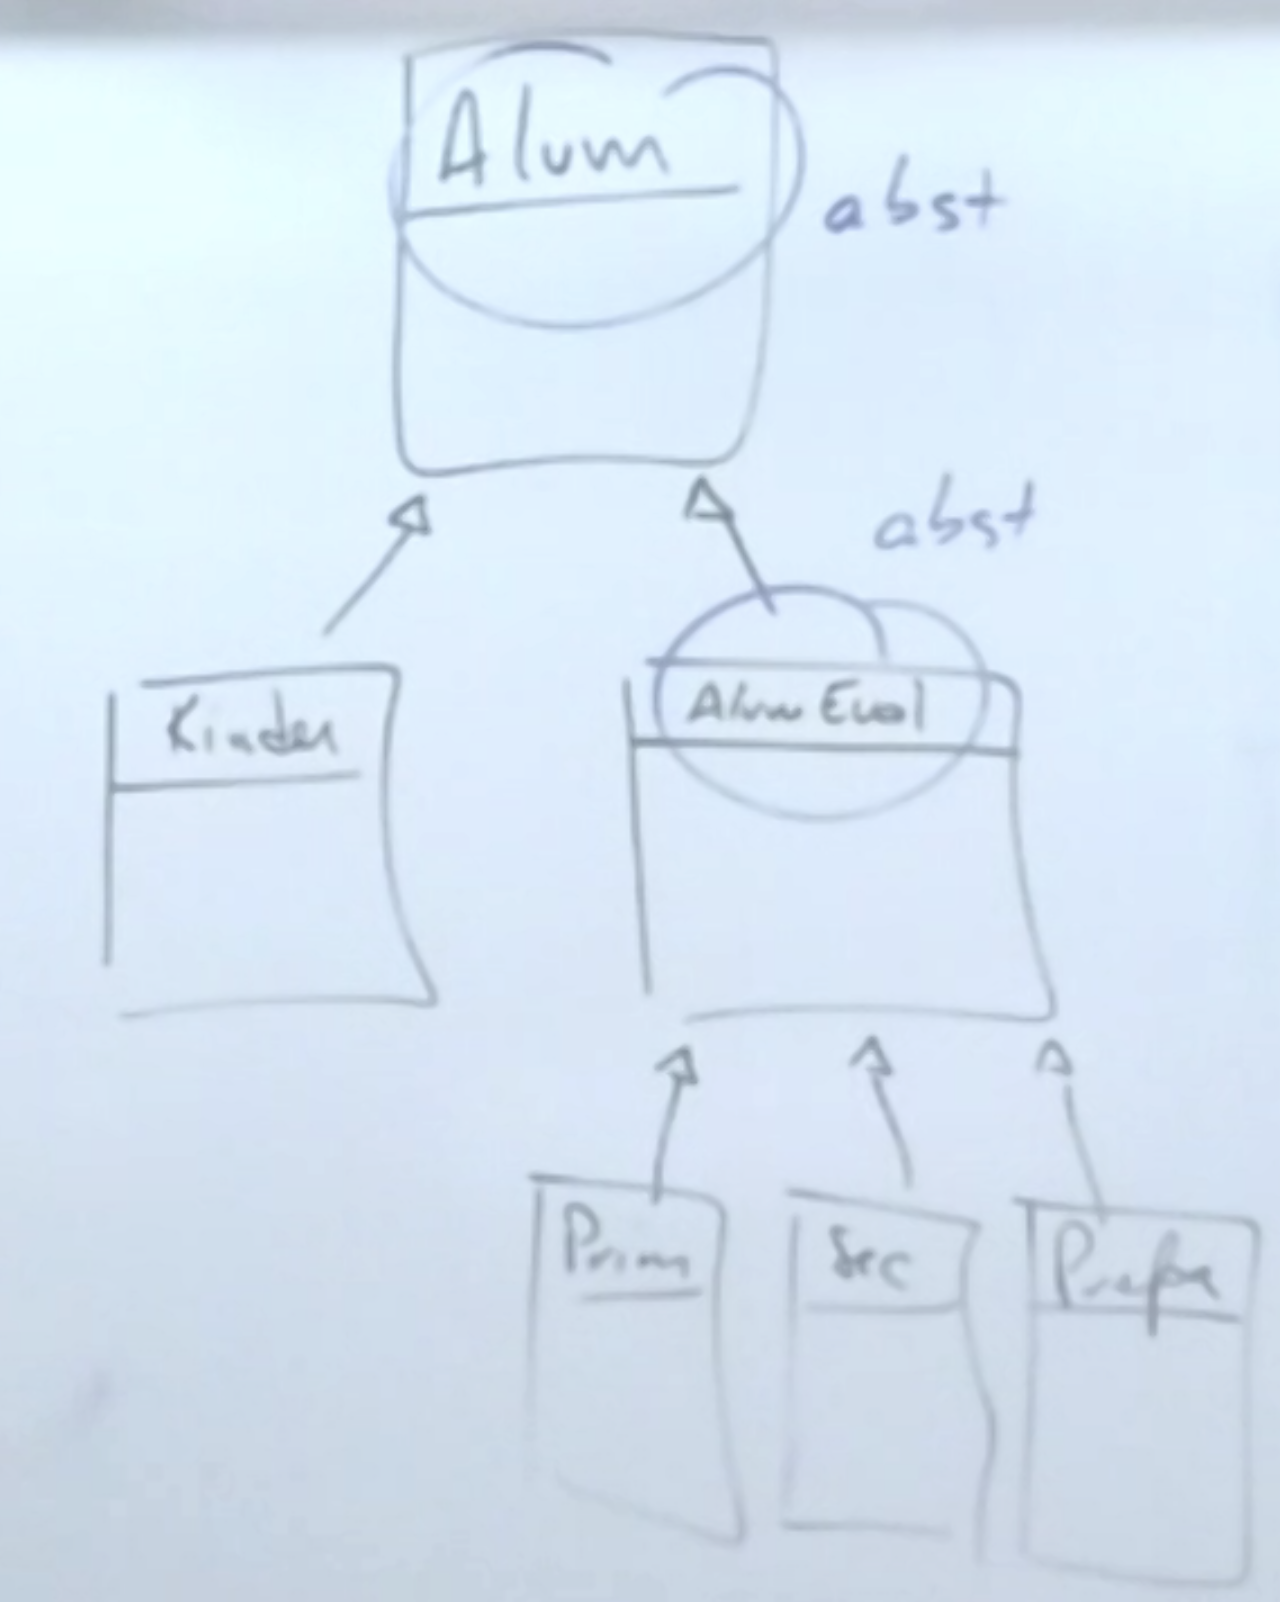 Alum
abst
abst
Kinder
Alum Eval
Prim
Sec
Prepa